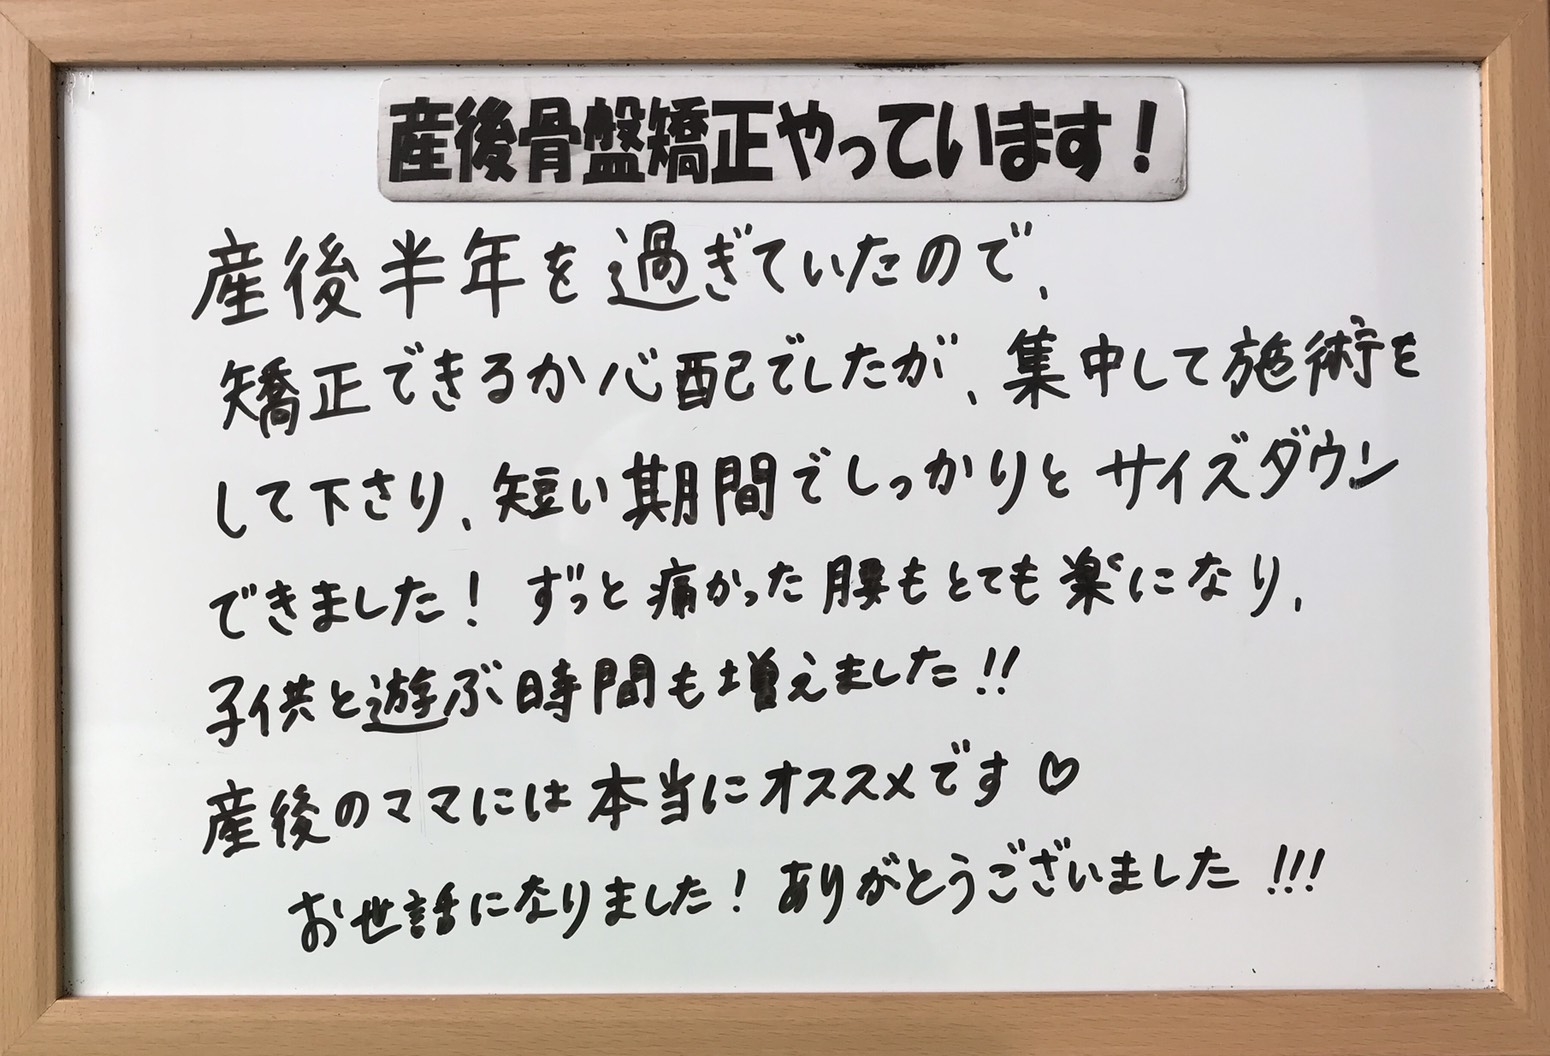 産後骨盤矯正やっています！
産後半年を過ぎていたので、
矯正できるか心配でしたが、集中して施術を
して下さり、短い期間でしっかりとサイズダウン
できました！ずっと痛かった腰もとても楽になり、
子供と遊ぶ時間も増えました!!
産後のママには本当にオススメです♡
お世話になりました！ありがとうございました!!!